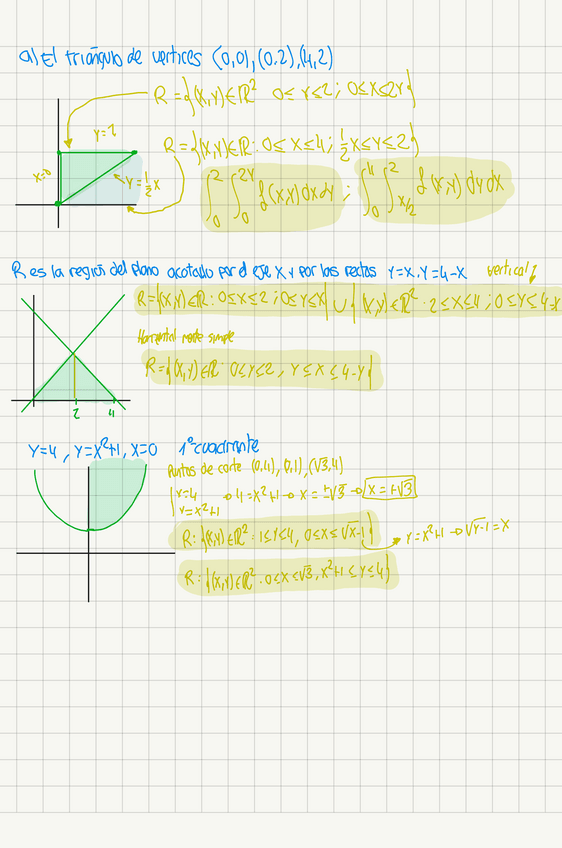 a) El triángulo de vertices (0,0), (0,2), (4,2)
R = {(x,y)∈ℝ² 0≤y≤2; 0≤x≤2y}
y=2
R = {(x,y)∈ℝ²: 0≤x≤4; ½x≤y≤2}
x=0
y=½x
∫₀² ∫₀²ʸ f(x,y) dx dy ; ∫₀⁴ ∫ₓ/₂² f(x,y) dy dx
R es la región del plano acotado por el eje x y por las rectas y=x, y=4-x vertical
R={(x,y)∈ℝ: 0≤x≤2; 0≤y≤x} ∪ {(x,y)∈ℝ²: 2≤x≤4; 0≤y≤4-x
Horizontal more simple
R={(x,y)∈ℝ: 0≤y≤2, y≤x≤4-y}
2 4
y=4, y=x²+1, x=0 1º cuadrante
Puntos de corte (0,4), 0,1), (√3,4)
y=4
y=x²+1
→ 4=x²+1 → x=±√3 → x=+√3
R: {(x,y)∈ℝ²: 1≤y≤4, 0≤x≤√x-1}
y=x²+1 → √y-1=x
R: {(x,y)∈ℝ²: 0≤x≤√3, x²+1≤y≤4}